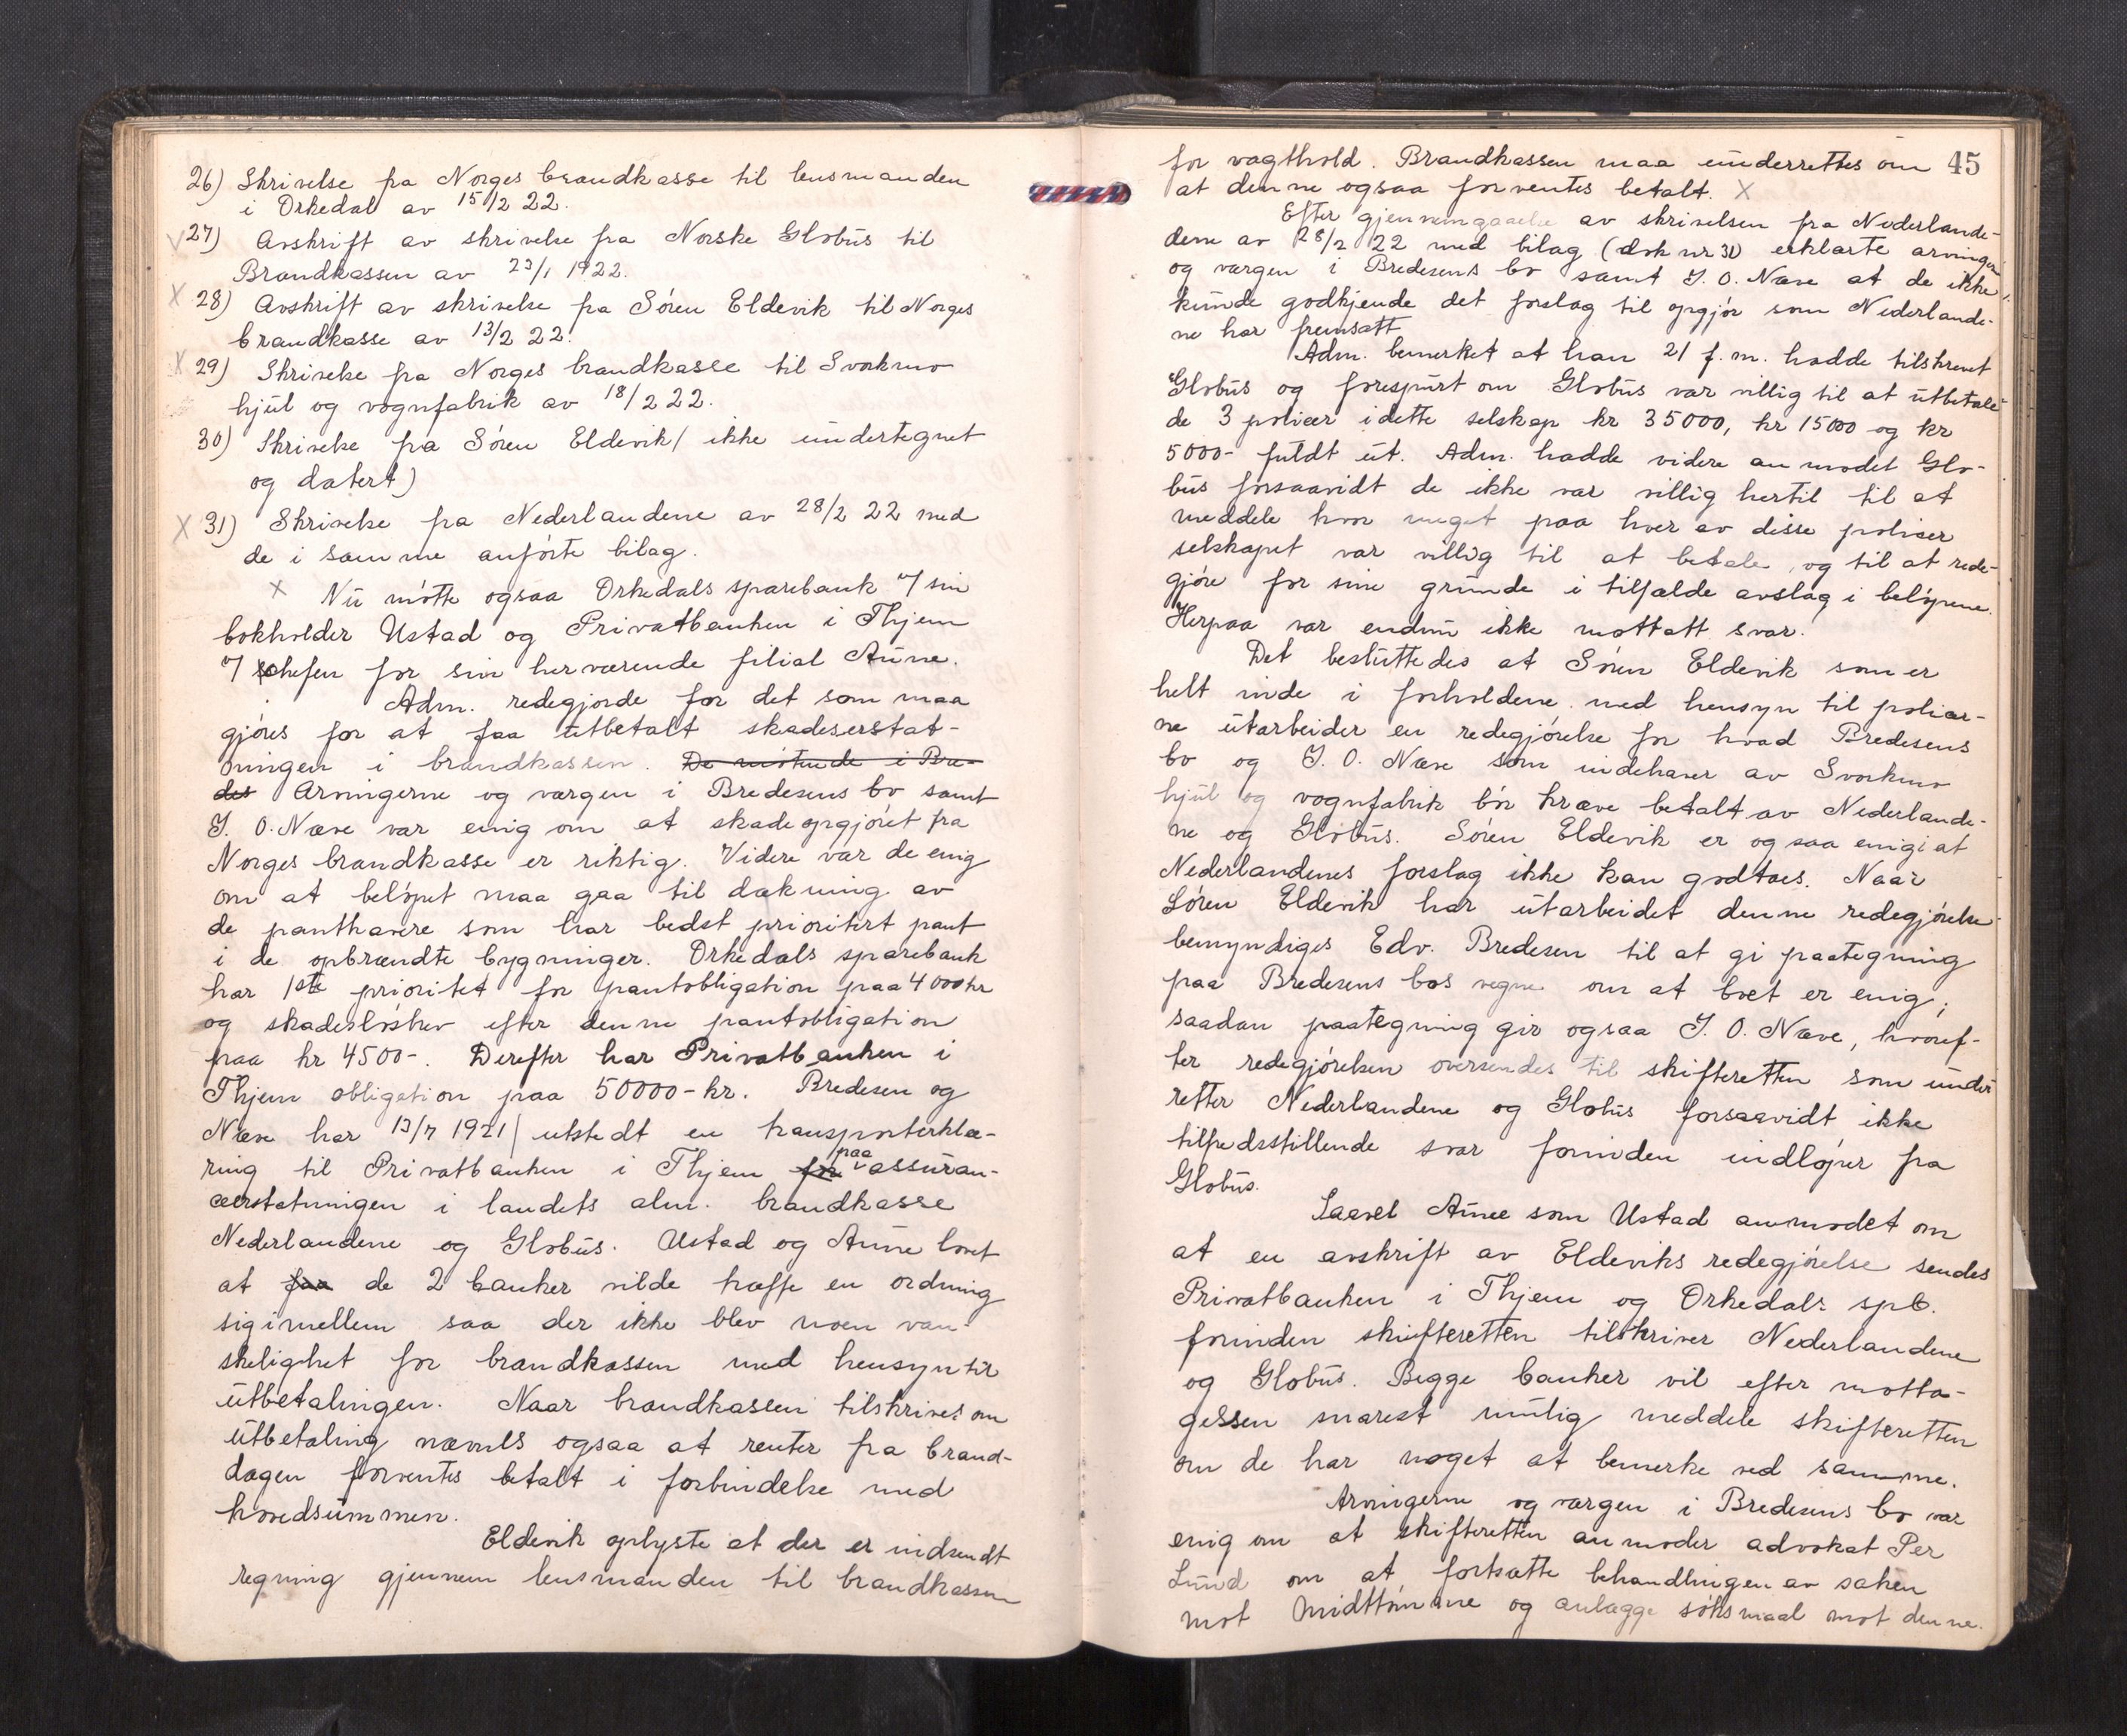 26) Skrivelse fra Norges brandkasse til lensmanden
i Orkedal av 15/2 22.
27) Avskrift av skrivelse fra Norske Globus til
Brandkassen av 23/1 1922.
X 28) Avskrift av skrivelse fra Sóren Eldevik til Norges
brandkasse av 13/2 22.
X 29) Skrivelse fra Norges brandkasse til Svorkmo
hjul og vognfabrik av 18/2 22.
30) Skrivelse fra Sóren Eldevik (ikke undertegnet
og datert)
X 31) Skrivelse fra Nederlandene av 28/2 22 med
de i samme anfórte bilag.
X Nu mótte ogsaa Orkedals sparebank v/ sin
bokholder Ustad og Privatbanken i Thjem
v/ chefen for sin herværende filial Aune.
Adm. redegjorde for det som maa
gjóres for at faa utbetalt skadeserstat-
ningen i brandkassen. De mótende i Bre-
des Arvingerne og værgen i Bredesens bo samt
J. O. Næve var enig om at skadeopgjóret fra
Norges brandkasse er riktig. Videre var de enig
om at belópet maa gaa til dækning av
de panthavere som har bedst prioritert pant
i de opbrændte bygninger. Orkedals sparebank
har 1ste prioritet for pantobligation paa 4000 kr
og skadeslósbrev efter denne pantobligation
paa kr 4500-. Derefter har Privatbanken i
Thjem obligation paa 50000- kr. Bredesen og
Næve har 13/7 1921 utstedt en transporterklæ-
ring til Privatbanken i Thjem for paa assuran-
ceerstatningen i landets alm. brandkasse
Nederlandene og Globus. Ustad og Aune lovet
at faa de 2 banker vilde træffe en ordning
sig imellem saa der ikke blev noen van-
skelighet for brandkassen med hensyn til
utbetalingen. Naar brandkassen tilskrives om
utbetaling nævnes ogsaa at renter fra brand-
dagen forventes betalt i forbindelse med
hovedsummen.
Eldevik oplyste at der er indsendt
regning gjennem lensmanden til brandkassen
for vagthold. Brandkassen maa underrettes om 45
at denne ogsaa forventes betalt. X
Efter gjennemgaaelse av skrivelsen fra Nederlande-
dene av 28/2 22 med bilag (dok nr 31) erklærte arvingerne
og værgen i Bredesens bo samt J. O. Næve at de ikke
kunde godkjende det forslag til opgjór som Nederlande-
ne har fremsatt.
Adm. bemerket at han 21 f. m. hadde tilskrevet
Globus og forespurt om Globus var villig til at utbetale
de 3 policer i dette selskap kr 35000, kr 15000 og kr
5000- fuldt ut. Adm. hadde videre anmodet Glo-
bus forsaavidt de ikke var villig hertil til at
meddele hvor meget paa hver av disse policer
selskapet var villig til at betale, og til at rede-
gjóre for sine grunde i tilfælde avslag i belópene.
Herpaa var endnu ikke mottatt svar.
Det besluttedes at Sóren Eldevik som er
helt inde i forholdene med hensyn til policer-
ne utarbeider en redegjórelse for hvad Bredesens
bo og J. O. Næve som indehaver av Svorkmo
hjul og vognfabrik bór kræve betalt av Nederlande-
ne og Globus. Sóren Eldevik er ogsaa enig i at
Nederlandenes forslag ikke kan godtaes. Naar
Sóren Eldevik har utarbeidet denne redegjórelse
bemyndiges Edv. Bredesen til at gi paategning
paa Bredesens bos vegne om at boet er enig;
saadan paategning gir ogsaa J. O. Næve, hvoref-
ter redegjórelsen oversendes til skifteretten som under-
retter Nederlandene og Globus forsaavidt ikke
tilfredsstillende svar forinden indlóper fra
Globus.
Saavel Aune som Ustad anmodet om
at en avskrift av Eldeviks redegjórelse sendes
Privatbanken i Thjem og Orkedals spb.
forinden skifteretten tilskriver Nederlandene
og Globus. Begge banker vil efter motta-
gelsen snarest mulig meddele skifteretten
om de har noget at bemerke ved samme.
Arvingerne og værgen i Bredesens bo var
enig om at skifteretten anmoder advokat Per
Lund om at fortsætte behandlingen av saken
mot Midttómme og anlægge sóksmaal mot denne.